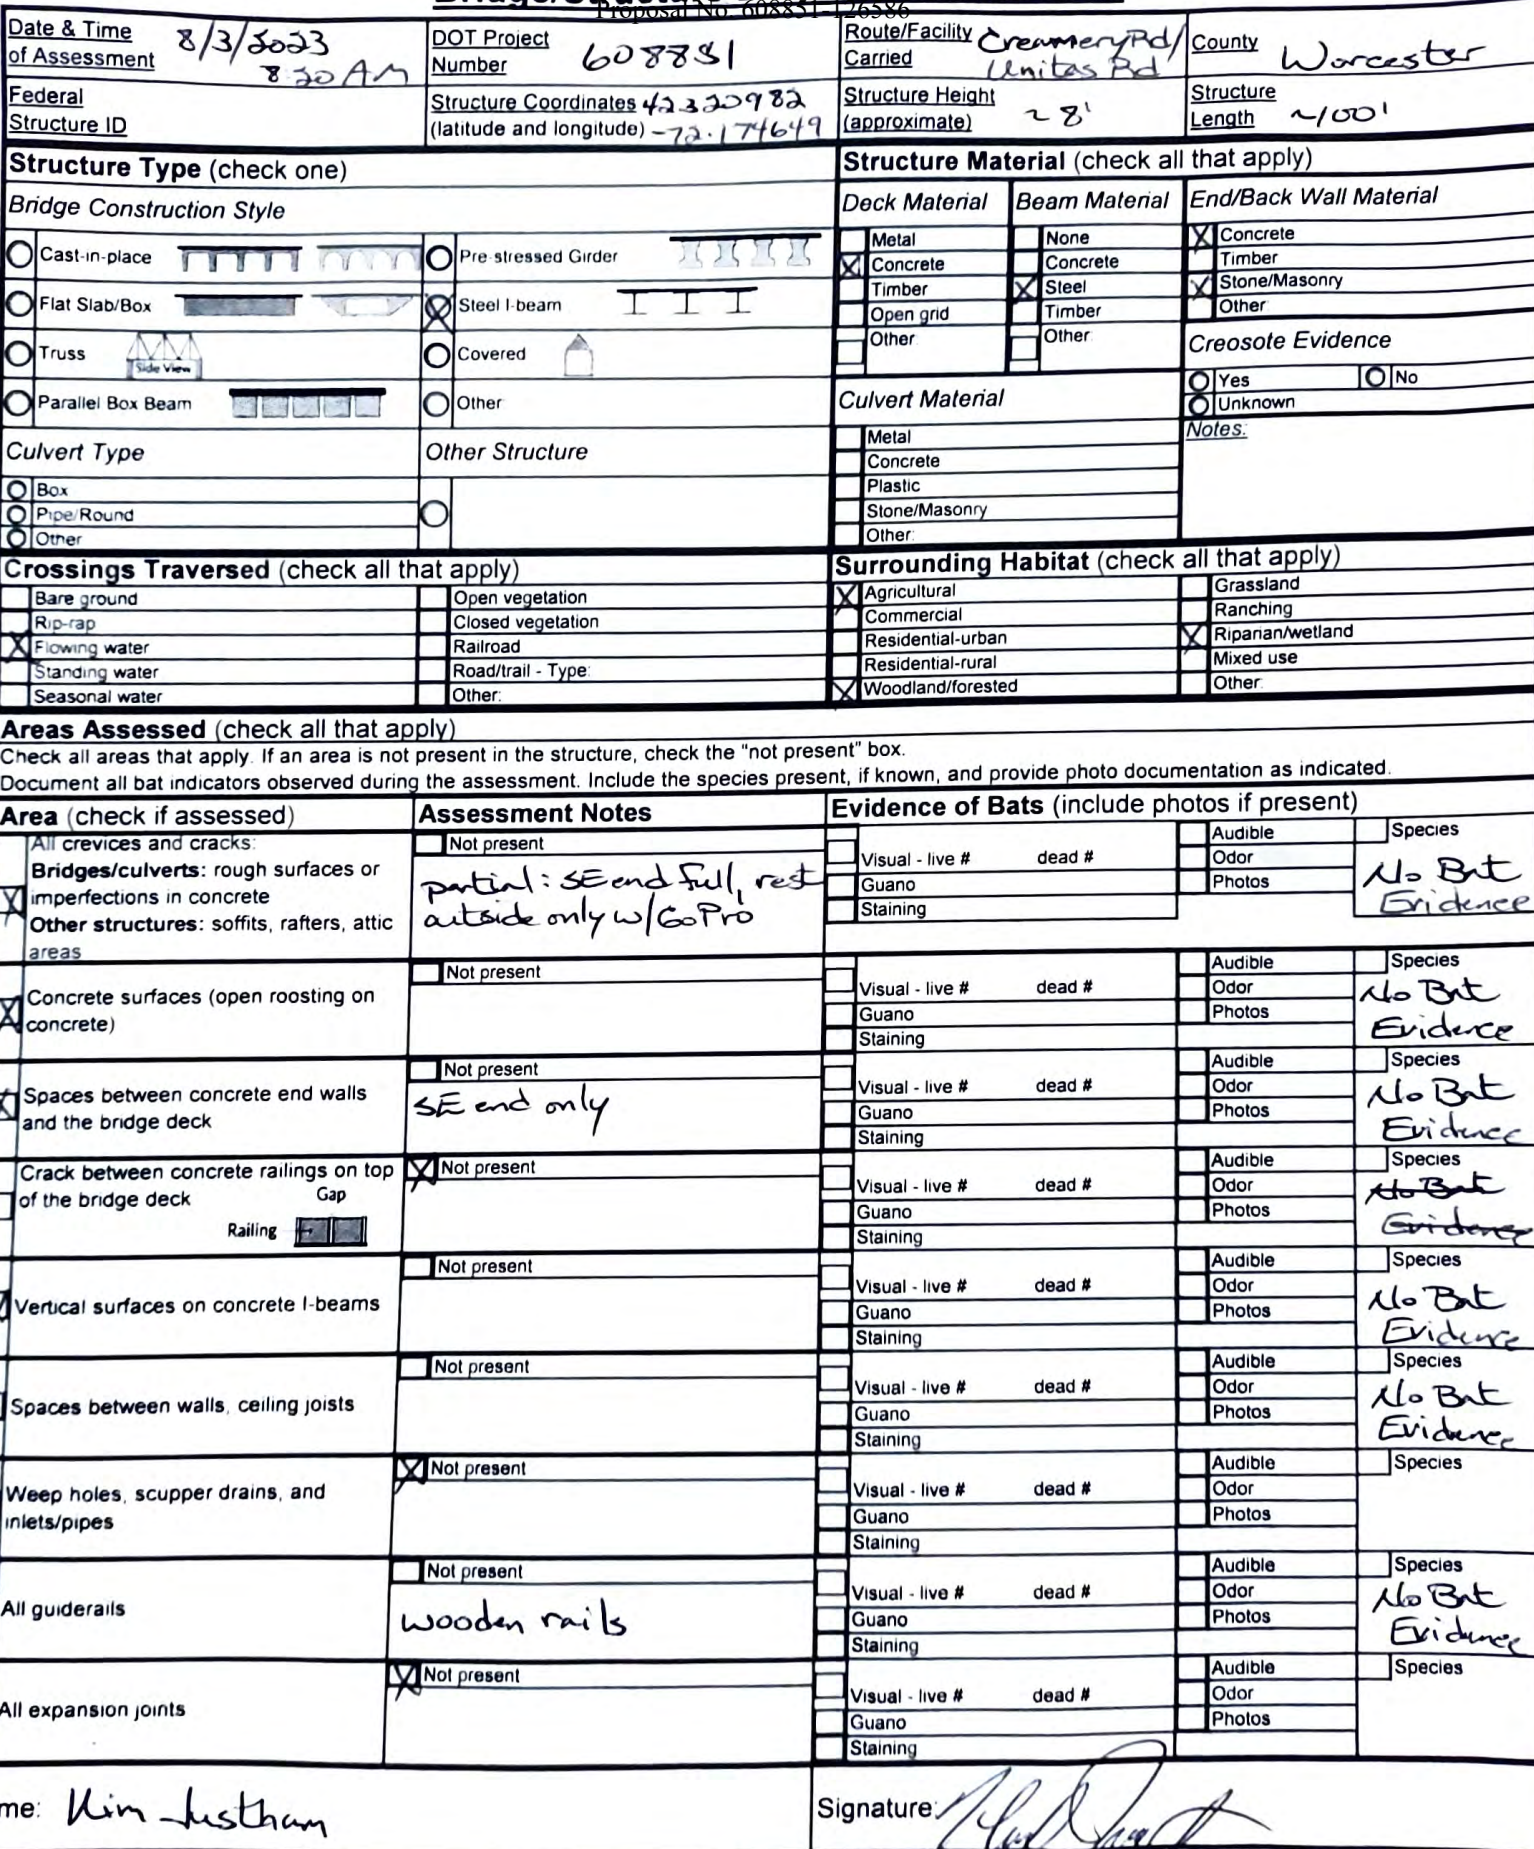 Proposal No. 608851-126586
Date & Time of Assessment 8/3/2023 8:30 AM
DOT Project Number 608851
Route/Facility Carried Creamery Rd/ Unitas Rd
County Worcester
Federal Structure ID
Structure Coordinates 42.320982
(latitude and longitude) -72.174649
Structure Height (approximate) ~ 8'
Structure Length ~100'
Structure Type (check one)
Structure Material (check all that apply)
Bridge Construction Style
Deck Material
Beam Material
End/Back Wall Material
Cast-in-place
Pre-stressed Girder
Flat Slab/Box
Steel I-beam
Truss
Side View
Covered
Parallel Box Beam
Other
Metal
X Concrete
Timber
Open grid
Other
None
Concrete
X Steel
Timber
Other
X Concrete
Timber
X Stone/Masonry
Other
Creosote Evidence
Yes
No
Unknown
Notes:
Culvert Type
Other Structure
Box
Pipe/Round
Other
Culvert Material
Metal
Concrete
Plastic
Stone/Masonry
Other:
Crossings Traversed (check all that apply)
Bare ground
Rip-rap
X Flowing water
Standing water
Seasonal water
Open vegetation
Closed vegetation
Railroad
Road/trail - Type:
Other:
Surrounding Habitat (check all that apply)
X Agricultural
Commercial
Residential-urban
Residential-rural
X Woodland/forested
Grassland
Ranching
X Riparian/wetland
Mixed use
Other
Areas Assessed (check all that apply)
Check all areas that apply. If an area is not present in the structure, check the "not present" box.
Document all bat indicators observed during the assessment. Include the species present, if known, and provide photo documentation as indicated.
Area (check if assessed)
Assessment Notes
Evidence of Bats (include photos if present)
All crevices and cracks:
Bridges/culverts: rough surfaces or
imperfections in concrete
Other structures: soffits, rafters, attic
areas
Not present
partial: SE end full, rest
outside only w/GoPro
Visual - live # dead #
Guano
Staining
Audible
Odor
Photos
Species
No Bat
Evidence
Concrete surfaces (open roosting on
concrete)
Not present
Visual - live # dead #
Guano
Staining
Audible
Odor
Photos
Species
No Bat
Evidence
Spaces between concrete end walls
and the bridge deck
Not present
SE end only
Visual - live # dead #
Guano
Staining
Audible
Odor
Photos
Species
No Bat
Evidence
Crack between concrete railings on top
of the bridge deck
Gap
Railing
X Not present
Visual - live # dead #
Guano
Staining
Audible
Odor
Photos
Species
No Bat
Evidence
Vertical surfaces on concrete I-beams
Not present
Visual - live # dead #
Guano
Staining
Audible
Odor
Photos
Species
No Bat
Evidence
Spaces between walls, ceiling joists
Not present
Visual - live # dead #
Guano
Staining
Audible
Odor
Photos
Species
No Bat
Evidence
Weep holes, scupper drains, and
inlets/pipes
X Not present
Visual - live # dead #
Guano
Staining
Audible
Odor
Photos
Species
All guiderails
Not present
wooden rails
Visual - live # dead #
Guano
Staining
Audible
Odor
Photos
Species
No Bat
Evidence
All expansion joints
X Not present
Visual - live # dead #
Guano
Staining
Audible
Odor
Photos
Species
me: Kim Justham
Signature: